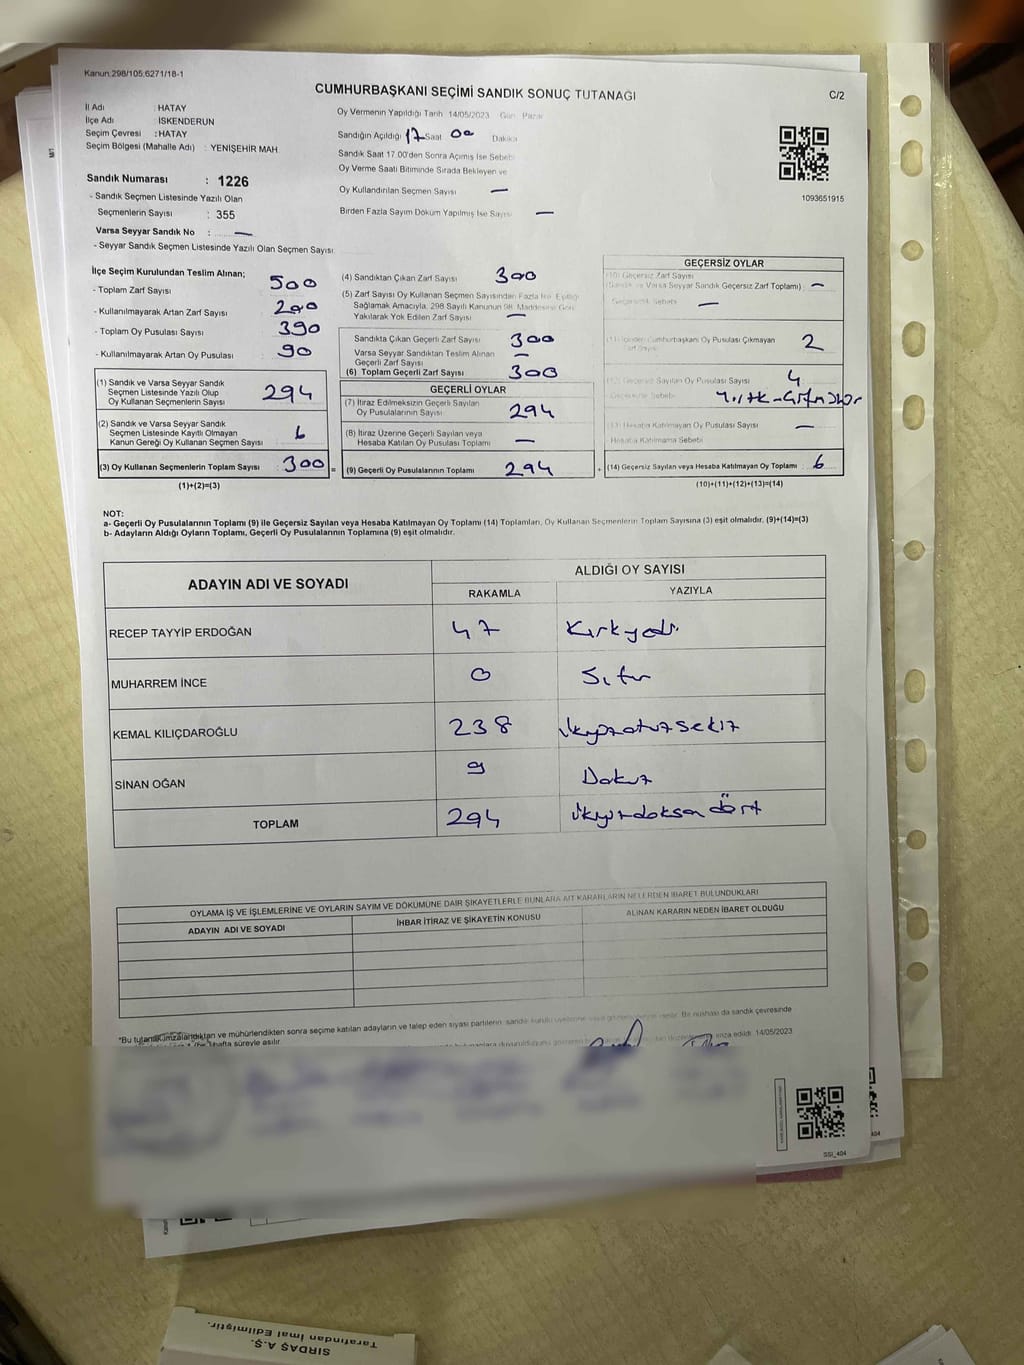 Kanun:298/105,6271/18-1
CUMHURBAŞKANI SEÇİMİ SANDIK SONUÇ TUTANAĞI
C/2
İl Adı : HATAY
İlçe Adı : İSKENDERUN
Seçim Çevresi : HATAY
Seçim Bölgesi (Mahalle Adı) : YENİŞEHİR MAH
Sandık Numarası : 1226
- Sandık Seçmen Listesinde Yazılı Olan
Seçmenlerin Sayısı : 355
Varsa Seyyar Sandık No : —
- Seyyar Sandık Seçmen Listesinde Yazılı Olan Seçmen Sayısı:
Oy Vermenin Yapıldığı Tarih 14/05/2023 Gün Pazar
Sandığın Açıldığı 17 Saat 00 Dakika
Sandık Saat 17.00'den Sonra Açımış İse Sebebi
Oy Verme Saati Bitiminde Sırada Bekleyen ve
Oy Kullandırılan Seçmen Sayısı —
Birden Fazla Sayım Döküm Yapılmış İse Sayısı —
1093651915
İlçe Seçim Kurulundan Teslim Alınan;
- Toplam Zarf Sayısı 500
- Kullanılmayarak Artan Zarf Sayısı 200
- Toplam Oy Pusulası Sayısı 390
- Kullanılmayarak Artan Oy Pusulası 90
(1) Sandık ve Varsa Seyyar Sandık
Seçmen Listesinde Yazılı Olup
Oy Kullanan Seçmenlerin Sayısı 294
(2) Sandık ve Varsa Seyyar Sandık
Seçmen Listesinde Kayıtlı Olmayan
Kanun Gereği Oy Kullanan Seçmen Sayısı 6
(3) Oy Kullanan Seçmenlerin Toplam Sayısı 300 =
(1)+(2)=(3)
(4) Sandıktan Çıkan Zarf Sayısı 300
(5) Zarf Sayısı Oy Kullanan Seçmen Sayısından Fazla İse, Eşitliği
Sağlamak Amacıyla, 298 Sayılı Kanunun 98. Maddesine Göre
Yakılarak Yok Edilen Zarf Sayısı —
Sandıkta Çıkan Geçerli Zarf Sayısı 300
Varsa Seyyar Sandıktan Teslim Alınan
Geçerli Zarf Sayısı —
(6) Toplam Geçerli Zarf Sayısı 300
GEÇERLİ OYLAR
(7) İtiraz Edilmeksizin Geçerli Sayılan
Oy Pusulalarının Sayısı 294
(8) İtiraz Üzerine Geçerli Sayılan veya
Hesaba Katılan Oy Pusulası Toplamı —
(9) Geçerli Oy Pusulalarının Toplamı 294 +
GEÇERSİZ OYLAR
(10) Geçersiz Zarf Sayısı
(Sandık ve Varsa Seyyar Sandık Geçersiz Zarf Toplamı) —
Geçersizlik Sebebi —
(11) İçinden Cumhurbaşkanı Oy Pusulası Çıkmayan
Zarf Sayısı 2
(12) Geçersiz Sayılan Oy Pusulası Sayısı 4
Geçersizlik Sebebi
(13) Hesaba Katılmayan Oy Pusulası Sayısı —
Hesaba Katılmama Sebebi
(14) Geçersiz Sayılan veya Hesaba Katılmayan Oy Toplamı : 6
(10)+(11)+(12)+(13)=(14)
NOT:
a- Geçerli Oy Pusulalarının Toplamı (9) ile Geçersiz Sayılan veya Hesaba Katılmayan Oy Toplamı (14) Toplamları, Oy Kullanan Seçmenlerin Toplam Sayısına (3) eşit olmalıdır. (9)+(14)=(3)
b- Adayların Aldığı Oyların Toplamı, Geçerli Oy Pusulalarının Toplamına (9) eşit olmalıdır.
ADAYIN ADI VE SOYADI
ALDIĞI OY SAYISI
RAKAMLA YAZIYLA
RECEP TAYYİP ERDOĞAN 47 Kırkyedi
MUHARREM İNCE 0 Sıfır
KEMAL KILIÇDAROĞLU 238 ikiyüzotuzsekiz
SİNAN OĞAN 9 Dokuz
TOPLAM 294 ikiyüzdoksandört
OYLAMA İŞ VE İŞLEMLERİNE VE OYLARIN SAYIM VE DÖKÜMÜNE DAİR ŞİKAYETLERLE BUNLARA AİT KARARLARIN NELERDEN İBARET BULUNDUKLARI
ADAYIN ADI VE SOYADI
İHBAR İTİRAZ VE ŞİKAYETİN KONUSU
ALINAN KARARIN NEDEN İBARET OLDUĞU
*Bu tutanak imzalandıktan ve mühürlendikten sonra seçime katılan adayların ve talep eden siyasi partilerin sandık kurulu üyelerine Bir nüshası da sandık çevresinde
hafta süreyle asılır. imza edildi. 14/05/2023
SSI_404
404
Tarafından İmal Edilmiştir.
SIRDAŞ A.Ş.